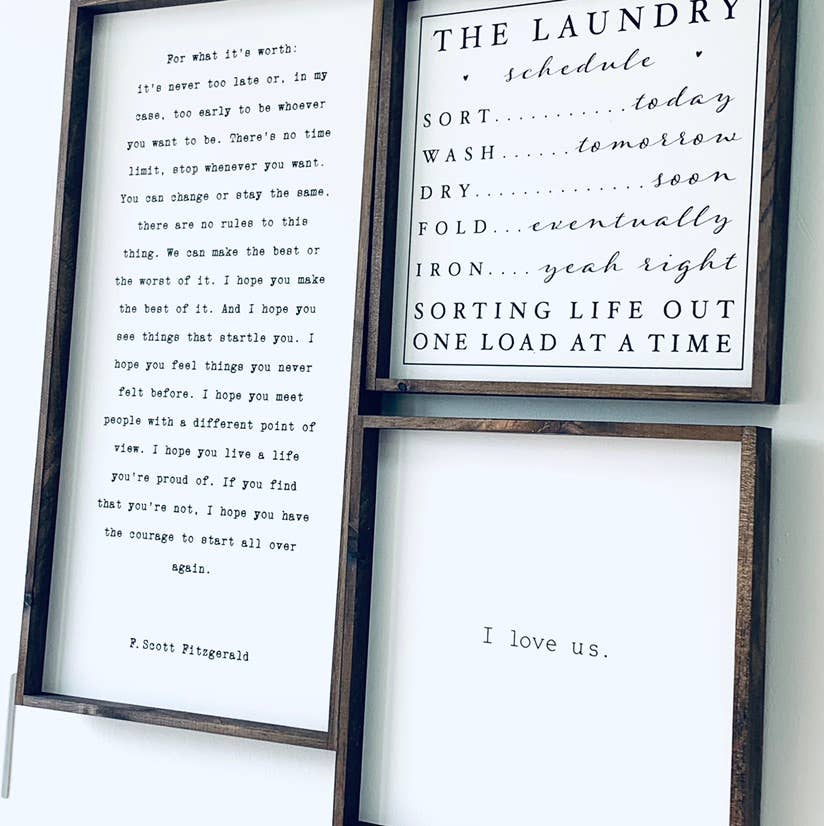 For what it's worth:
it's never too late or, in my
case, too early to be whoever
you want to be. There's no time
limit, stop whenever you want.
You can change or stay the same,
there are no rules to this
thing. We can make the best or
the worst of it. I hope you make
the best of it. And I hope you
see things that startle you. I
hope you feel things you never
felt before. I hope you meet
people with a different point of
view. I hope you live a life
you're proud of. If you find
that you're not, I hope you have
the courage to start all over
again.
F. Scott Fitzgerald
THE LAUNDRY
schedule
SORT...........today
WASH......tomorrow
DRY..............soon
FOLD...eventually
IRON....yeah right
SORTING LIFE OUT
ONE LOAD AT A TIME
I love us.